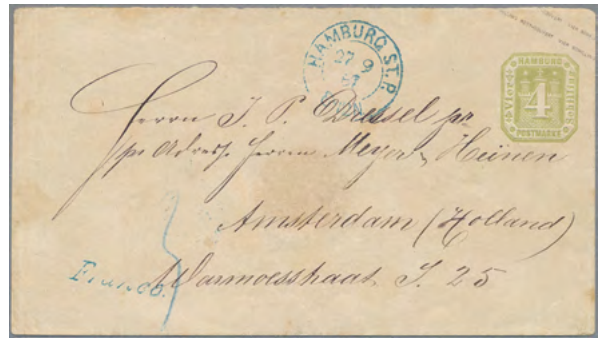 HAMBURG ST.P.
27 9
67
HAMBURG
Vier
4
Schilling
POSTMARKE
Herrn J. P. Dressel jr.
pr Adresse Herren Meyer & Heinen
Amsterdam (Holland)
Franco. Warmoesstraat J. 25